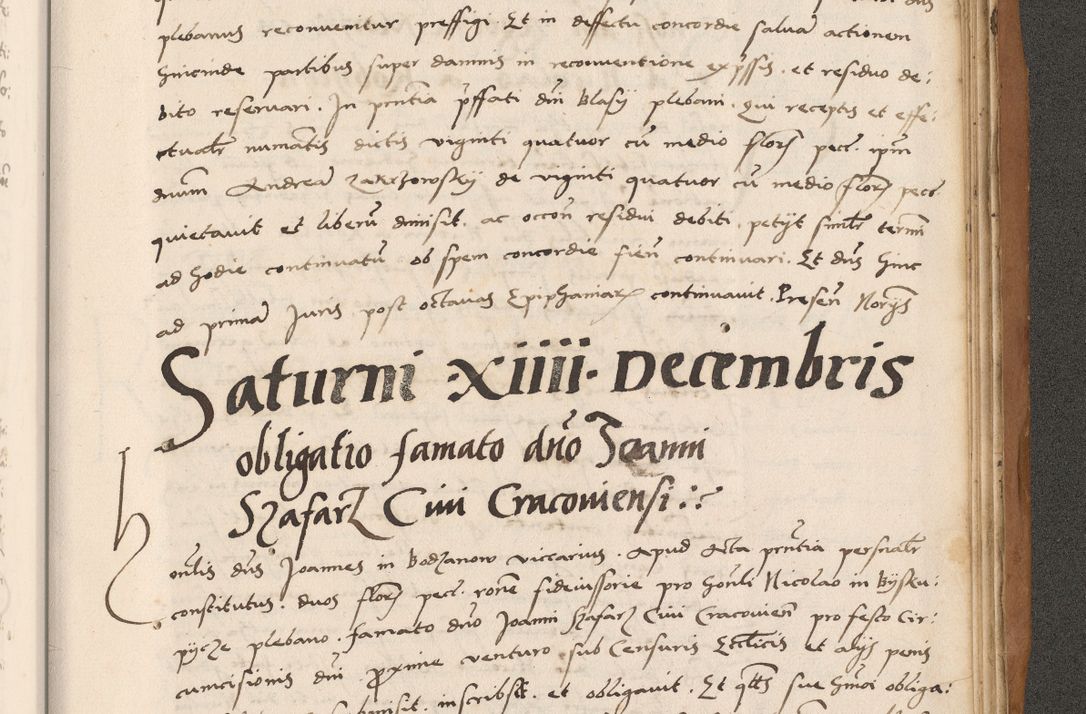 plebanus reconvenitur preffigi. Et in deffectu concordie salvā actionem
hincinde partibus super damnis in reconventione exp̄ssis, et residuo de:
bito reservari. In pn̄tia p̄ffati dn̄i Blasij plebani. qui receptis et effe:
ctualr̄ numatis dictis viginti quatuor cū medio floren̄ pec̄. ipm̄
dnum Andreā Zakrzowskij de viginti quatuor cū medio floren̄ pec̄
quietavit et liberū dimisit. ac occon̄ residui debiti. petijt similr̄ termn̄
ad hodie continuatū ob spem concordie fien̄ continuari. Et dn̄s hinc
ad primā Juris post octavas Epiphaniarꝝ continuavit. Presen̄ Norijs
Saturni XIIII Decembris
obligatio famato dn̄o Joanni
Szafarz Civi Cracoviensi
Honlis dn̄s Joannes in Bodzanow viccarius. Apud Acta pn̄tia personalr̄
constitutus. duos floren̄ pec̄. rōne fideiussorie pro honli Nicolao in Bijsku:
pijcze plebano. famato dn̄o Joanni Szafarz Civi Cracovien̄ pro festo Cir:
cumcisionis dn̄i proxime venturo sub Censuris Ecclīcis et alijs penis
inscribsit. et obligavit. Et qtt̄s sue hm̄oi obliga: